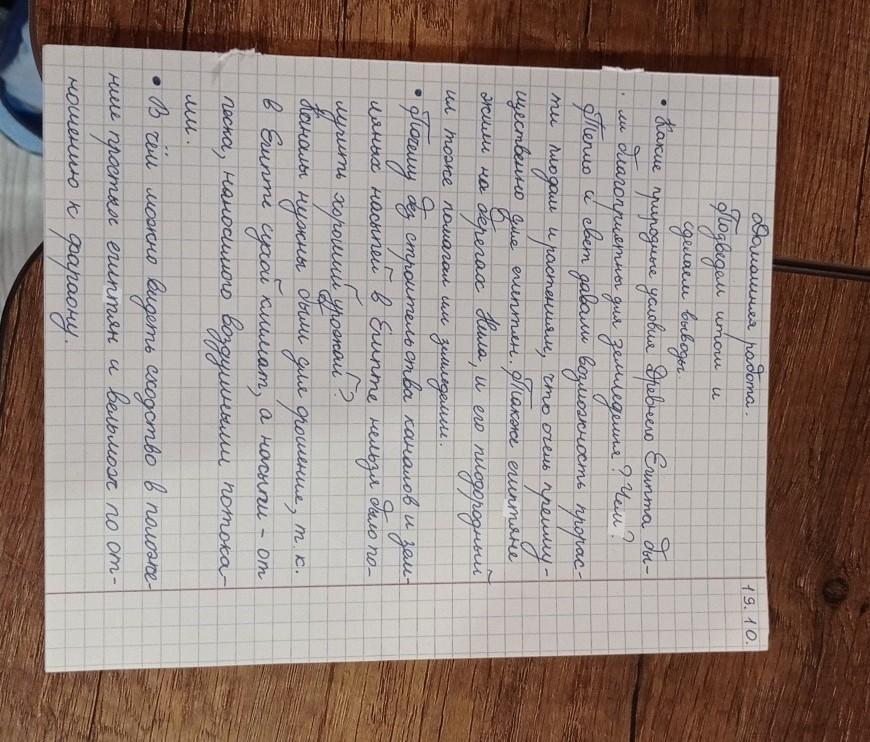 19.10.
Домашняя работа.
Подведём итоги и
сделаем выводы.
• Какие природные условия Древнего Египта бы-
ли благоприятны для земледелия? Чем?
Тепло и свет давали возможность прорас-
ти плодам и растениям, что очень преиму-
щественно для египтян. Также египтяне
жили на берегах Нила, и его плодородный
ил тоже помогал им земледелии.
• Почему без строительства каналов и зем-
ляных насыпей в Египте нельзя было по-
лучить хороший урожай?
Каналы нужны были для орошения, т.к.
в Египте сухой климат, а насыпи - от
песка, наносимого воздушными потока-
ми.
• В чём можно видеть сходство в положе-
нии простых египтян и вельмож по от-
ношению к фараону.